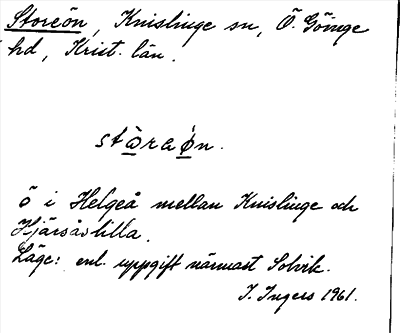 Storeön, Knislinge sn, Ö. Göinge
hd, Krist. län.
stòraǿn.
ö i Helgeå mellan Knislinge och
Hjärsåslilla.
Läge: enl. uppgift närmast Solvik.
I. Ingers 1961.